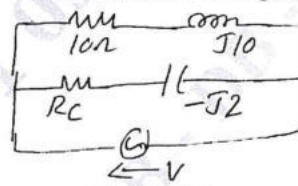 10Ω J10
RC -J2
G
V